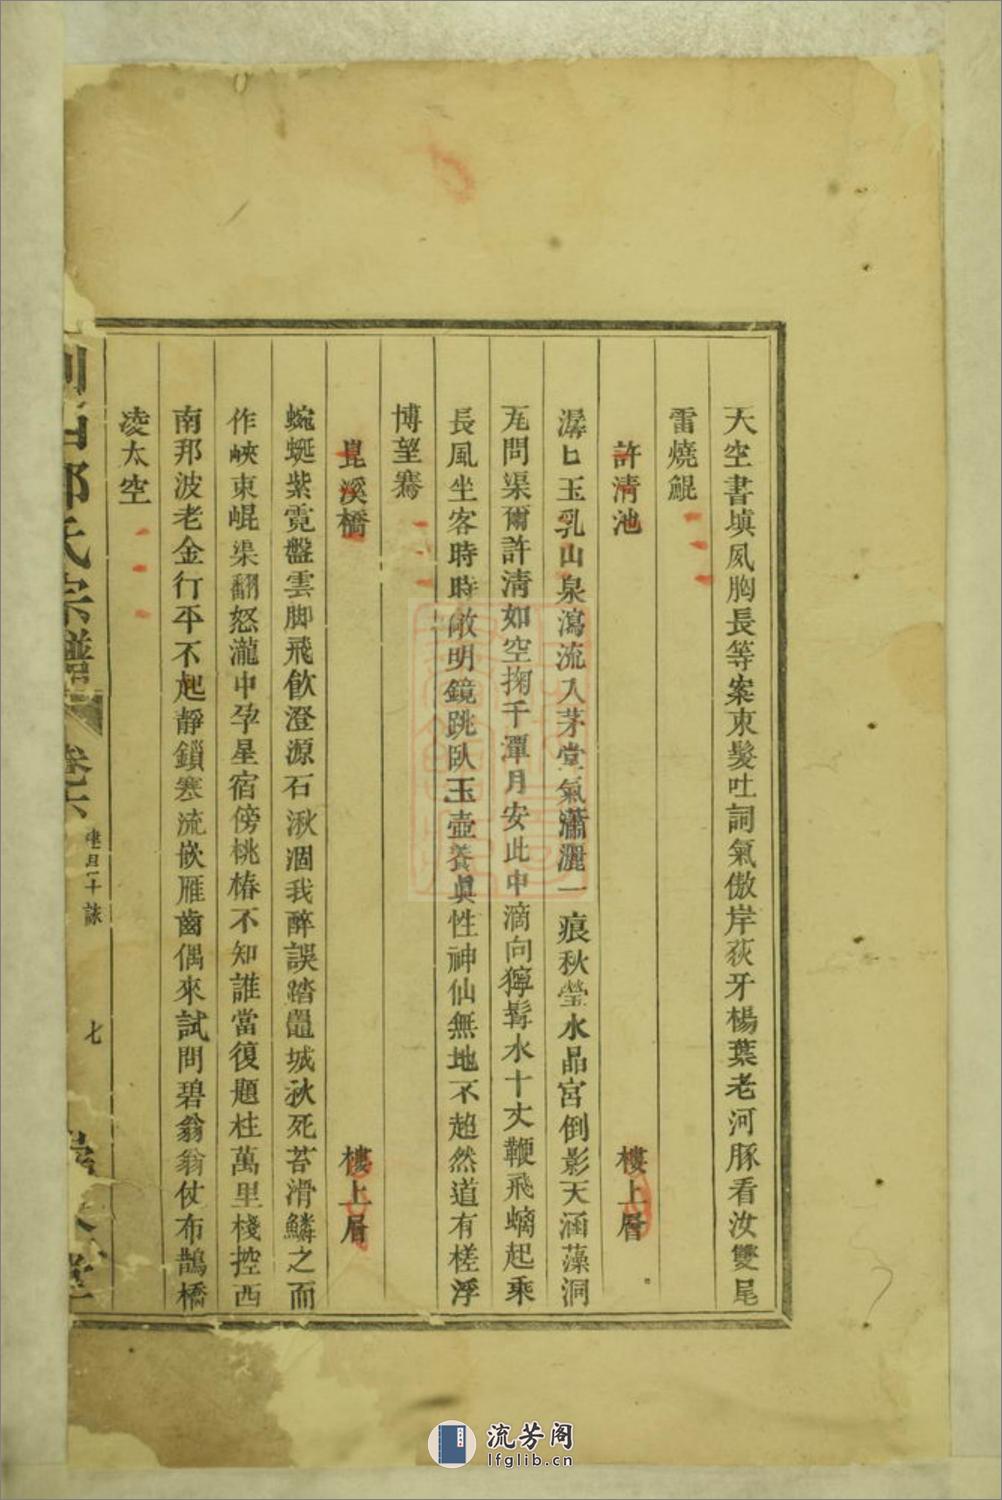 天空書填夙胸長等案束髮吐詞氣傲岸荻牙楊葉老河豚看汝雙尾
雷燒鯤
許清池 樓上層
潺匕玉乳山泉瀉流入茅堂氣瀟灑一痕秋瑩水晶宮倒影天涵藻洞
尨問渠爾許清如空掬千潭月安此中滴向獰髯水十丈鞭飛螭起乘
長風坐客時時敞明鏡跳臥玉壺養眞性神仙無地不超然道有槎浮
博望騫
崑溪橋 樓上層
蜿蜒紫霓盤雲脚飛飲澄源石湫涸我醉誤踏鼉城秋死苔滑鱗之而
作峽束崐渠翻怒瀧中孕星宿傍桃椿不知誰當復題柱萬里棧控西
南邦波老金行平不起靜鎖寒流嵌雁齒偶來試問碧翁翁仗布鵲橋
凌太空
氏宗譜 卷之六 七 堂
流芳阁
lfglib.cn